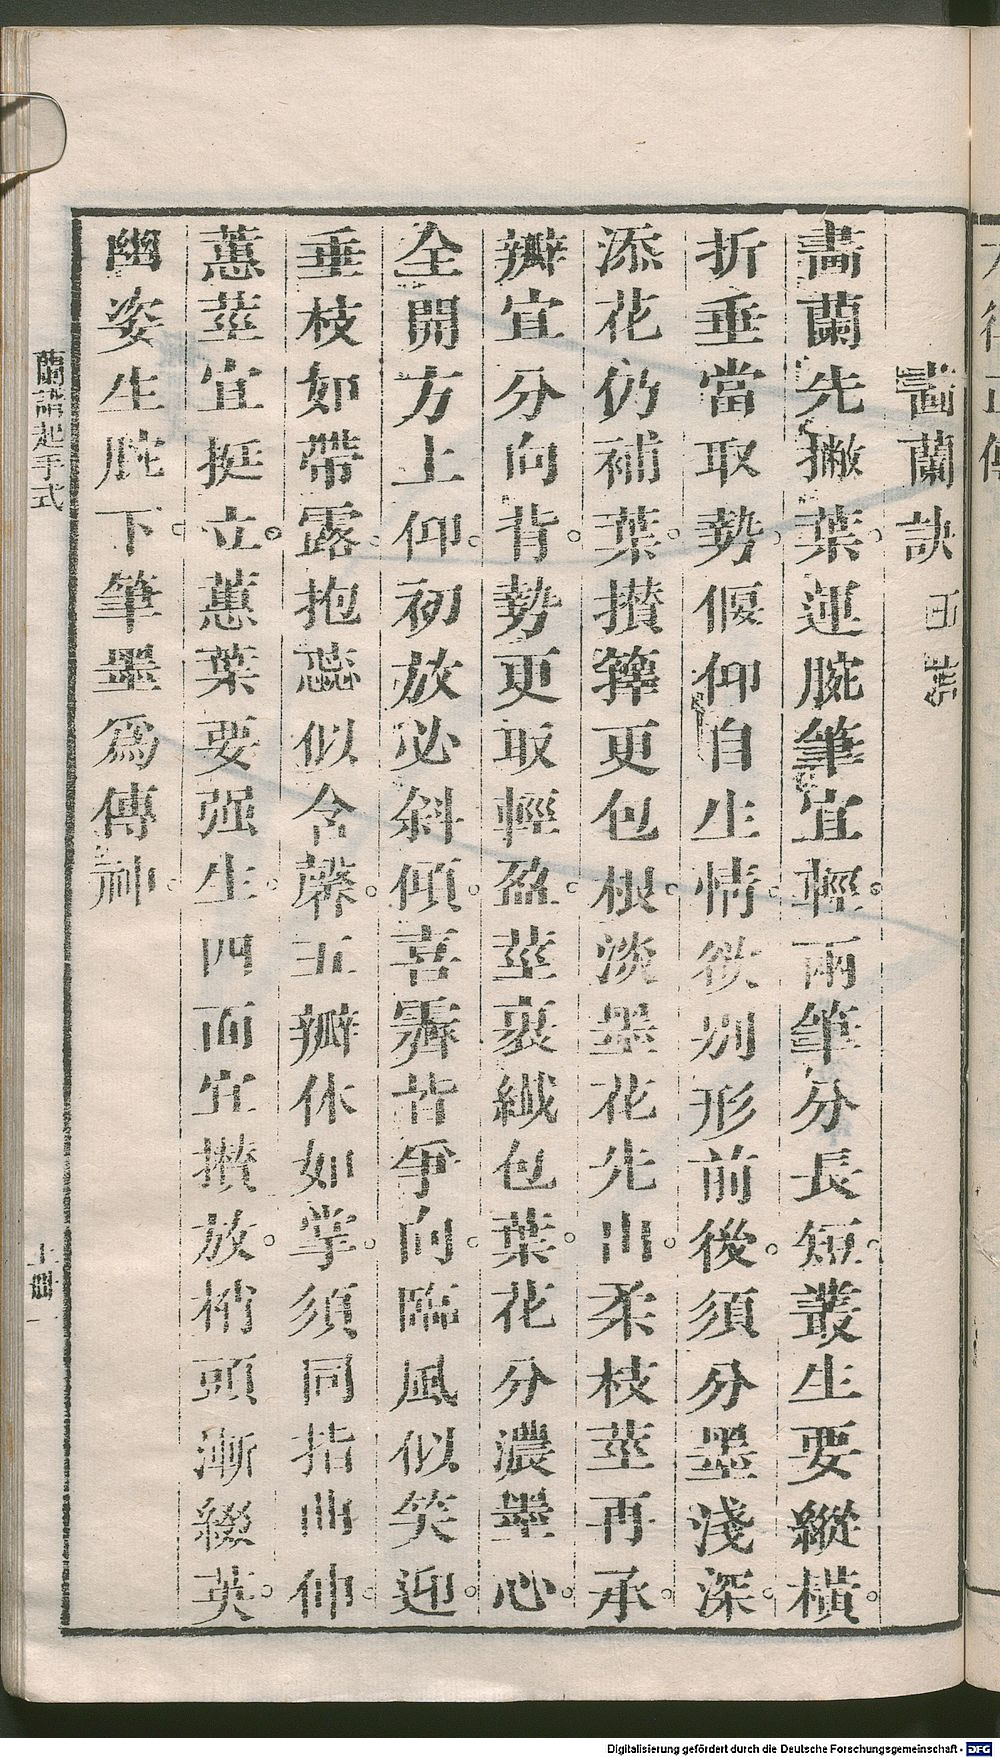 畵蘭訣 五言
畵蘭先撇葉。運腕筆宜輕。兩筆分長短。叢生要縱橫。
折垂當取勢。偃仰自生情。欲别形前後。須分墨淺深。
添花仍補葉。攅籜更包根。淡墨花先出。柔枝莖再承。
瓣宜分向背。勢更取輕盈。莖裹纎包葉。花分濃墨心。
全開方上仰。初放必斜傾。喜霽皆爭向。臨風似笑迎。
垂枝如帶露。抱蕊似含馨。五瓣休如掌。須同指曲伸。
蕙莖宜挺立。蕙葉要强生。四面宜攅放。梢頭漸綴英。
幽姿生腕下。筆墨爲傳神。
蘭譜起手式
Digitalisierung gefördert durch die Deutsche Forschungsgemeinschaft - DFG